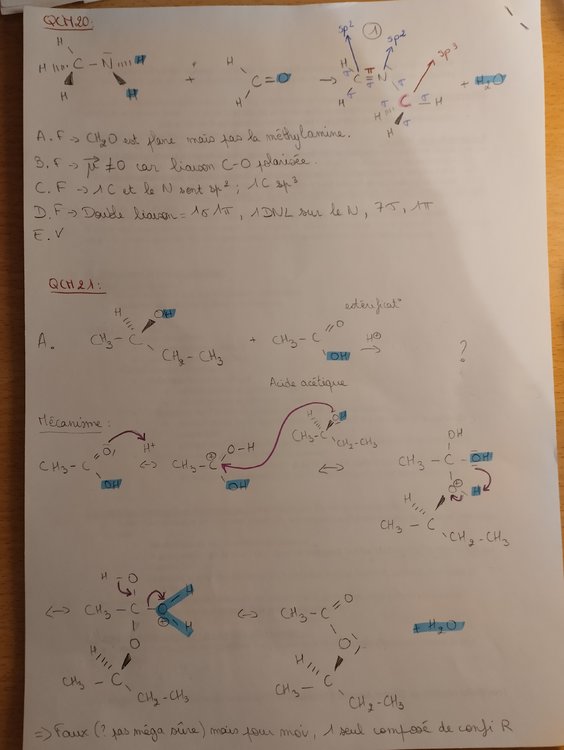 QCM20:
sp²
1
sp²
sp³
H
H
C - N̄
H
H
H
+
H
C = O
H
→
H
C = N
π
σ
H
σ
σ
H
C
σ
H
H
σ
+ H₂O
A. F → CH₂O est plane mais pas la méthylamine.
B. F → μ⃗ ≠ 0 car liaison C-O polarisée.
C. F → 1C et le N sont sp² ; 1C sp³
D. F → Double liaison = 1σ 1π, 1 DNL sur le N, 7σ, 1π
E. V
QCM21:
estérificat°
A.
H
OH
CH₃ - C
CH₂ - CH₃
+
CH₃ - C
O
OH
H⊕
→
?
Acide acétique
Mécanisme :
CH₃ - C
O
OH
H⁺
↔
CH₃ - C
⊕
O - H
OH
H
OH
CH₃ - C
CH₂ - CH₃
↔
OH
CH₃ - C - OH
O⊕
H
H
CH₃ - C
CH₂ - CH₃
↔
H - O
CH₃ - C - O
⊕
H
H
O
H
CH₃ - C
CH₂ - CH₃
↔
CH₃ - C
O
O
H
CH₃ - C
CH₂ - CH₃
+ H₂O
⇒ Faux (? pas méga sûre) mais pour moi, 1 seul composé de confi R